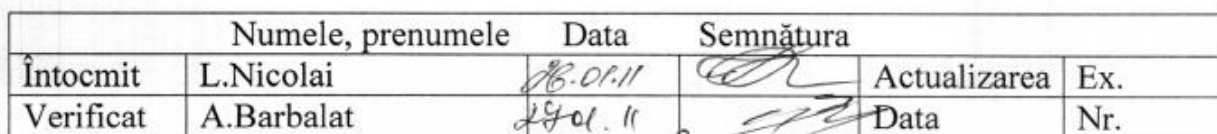 Numele, prenumele Data Semnătura
Întocmit L.Nicolai 26.01.11 Actualizarea Ex.
Verificat A.Barbalat Data Nr.